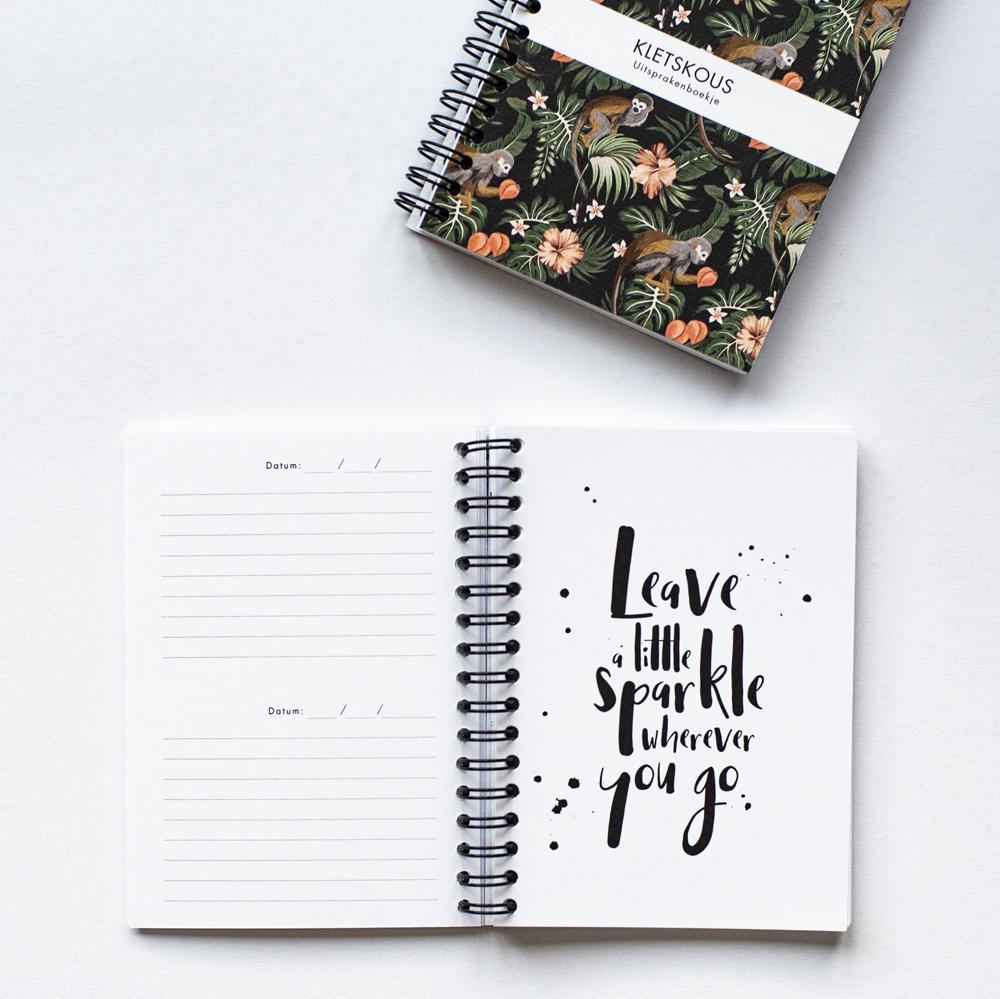 KLETSKOUS
Uitsprakenboekje
Datum: ____ / ____ / ____
Datum: ____ / ____ / ____
Leave
a little
sparkle
wherever
you go